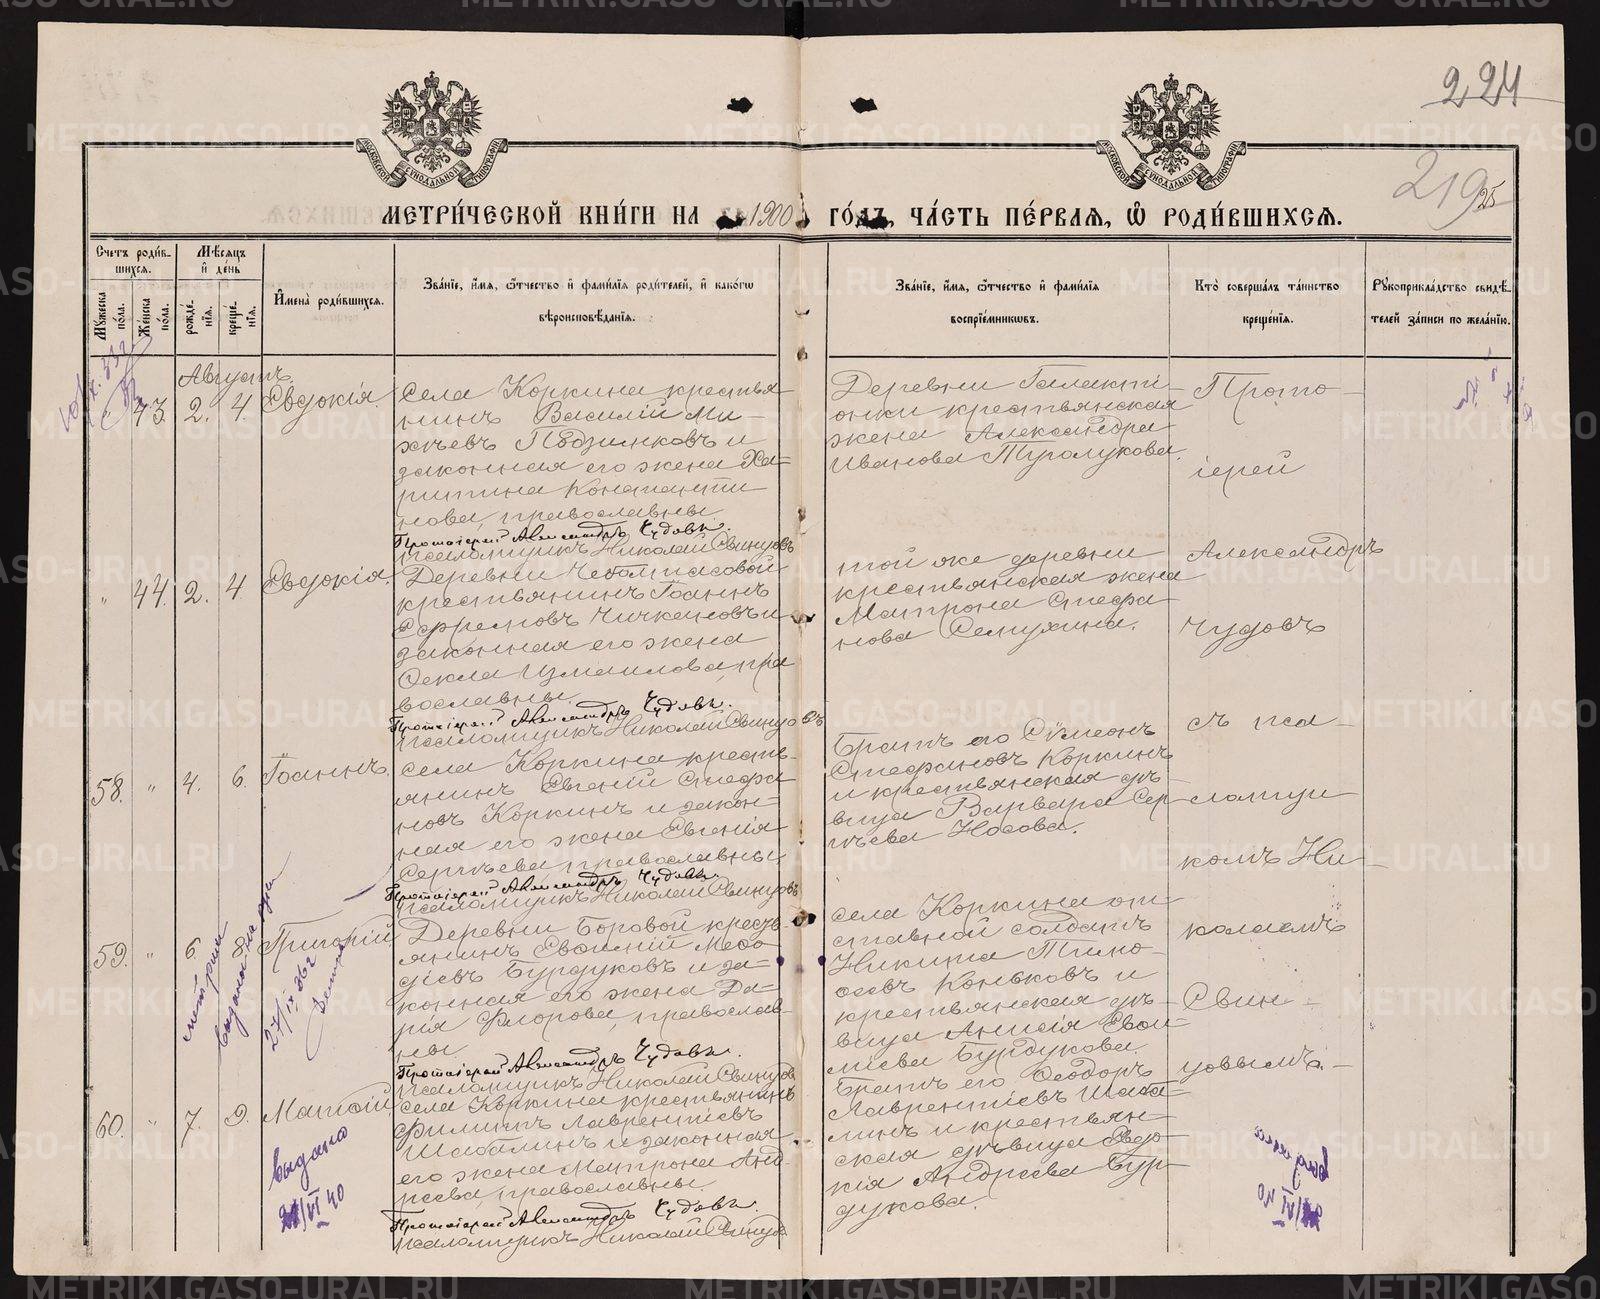 224
219
25
МОСКОВСКОЙ СѴНОДАЛЬНОЙ ТИПОГРАФІИ
МОСКОВСКОЙ СѴНОДАЛЬНОЙ ТИПОГРАФІИ
МЕТРИ́ЧЕСКОЙ КНИ́ГИ НА 1900 ГО́ДЪ, ЧА́СТЬ ПЕ́РВАЯ, Ѡ РОДИ́ВШИХСЯ.
Счетъ роди́в-
шихся.
Мѣсяцъ
и де́нь
Мꙋ́жеска по́ла.
Же́нска по́ла.
рожде́-
нїя.
креще́-
нїя.
И́мена роди́вшихся.
Зва́нїе, и́мя, ѻ́тчество и фами́лїя роди́телей, и како́гѡ
вѣроисповѣ́данїя.
Зва́нїе, и́мя, ѻ́тчество и фами́лїя
воспрїе́мникѡвъ.
Кто̀ соверша́лъ та́инство
креще́нїя.
Рꙋкоприкла́дство свидѣ́-
телей за́писи по жела́нїю.
Августъ.
43. 2. 4. Евдокія.
Села Коркина крестья
нинъ Василій Ми-
хѣевъ Подзимковъ и
законная его жена Ха-
ритина Константи
нова, православны.
Протоіерей Александръ Чудовъ.
псаломщикъ Николай Свинцовъ
Деревни Галакті-
онки крестьянская
жена Александра
Иванова Туголукова.
Прото-
іерей
" 44. 2. 4 Евдокія.
Деревни Чесотпасовой
крестьянинъ Іоаннъ
Ефремовъ Чичкановъ и
законная его жена
Ѳекла Измаилова, пра
вославны.
Протоіерей Александръ Чудовъ.
псаломщикъ Николай Свинцовъ
той же деревни
крестьянская жена
Матрона Стефа-
нова Семухина.
Александръ
Чудовъ
58. " 4. 6. Іоаннъ.
Села Коркина кресть-
янинъ Евгеній Стефа
новъ Коркинъ и закон-
ная его жена Евгенія
Сергѣева, православны
Протоіерей Александръ Чудовъ.
псаломщикъ Николай Свинцовъ
Братъ его Сѵмеонъ
Стефановъ Коркинъ
и крестьянская дѣ-
вица Варвара Сер-
гѣева Носова.
съ пса-
ломщи
комъ Ни-
59. " 6. 8. Григорій
Деревни Боровой кресть-
янинъ Евѳимій Меѳо-
діевъ Бурдуковъ и за-
конная его жена Да-
рія Флорова, православ-
ны.
Протоіерей Александръ Чудовъ.
псаломщикъ Николай Свинцовъ
села Коркина от
ставной солдатъ
Никита Тимо-
ѳеевъ Коньковъ и
крестьянская дѣ-
вица Анисія Евѳи-
міева Бурдукова.
колаемъ
Свин-
цовымъ.
метрики
выдана на руки
27/IX 36г
60. " 7. 9. Матѳій
Села Коркина крестьянинъ
Филиппъ Лаврентіевъ
Шабалинъ и законная
его жена Матрона Анд-
реева, православны.
Протоіерей Александръ Чудовъ.
псаломщикъ Николай Свинцовъ
Братъ его Ѳеодоръ
Лаврентіевъ Шаба-
линъ и крестьян-
ская дѣвица Евдо-
кія Андреева Бур-
дукова.
выдано
21/VI 40
METRIKI.GASO-URAL.RU